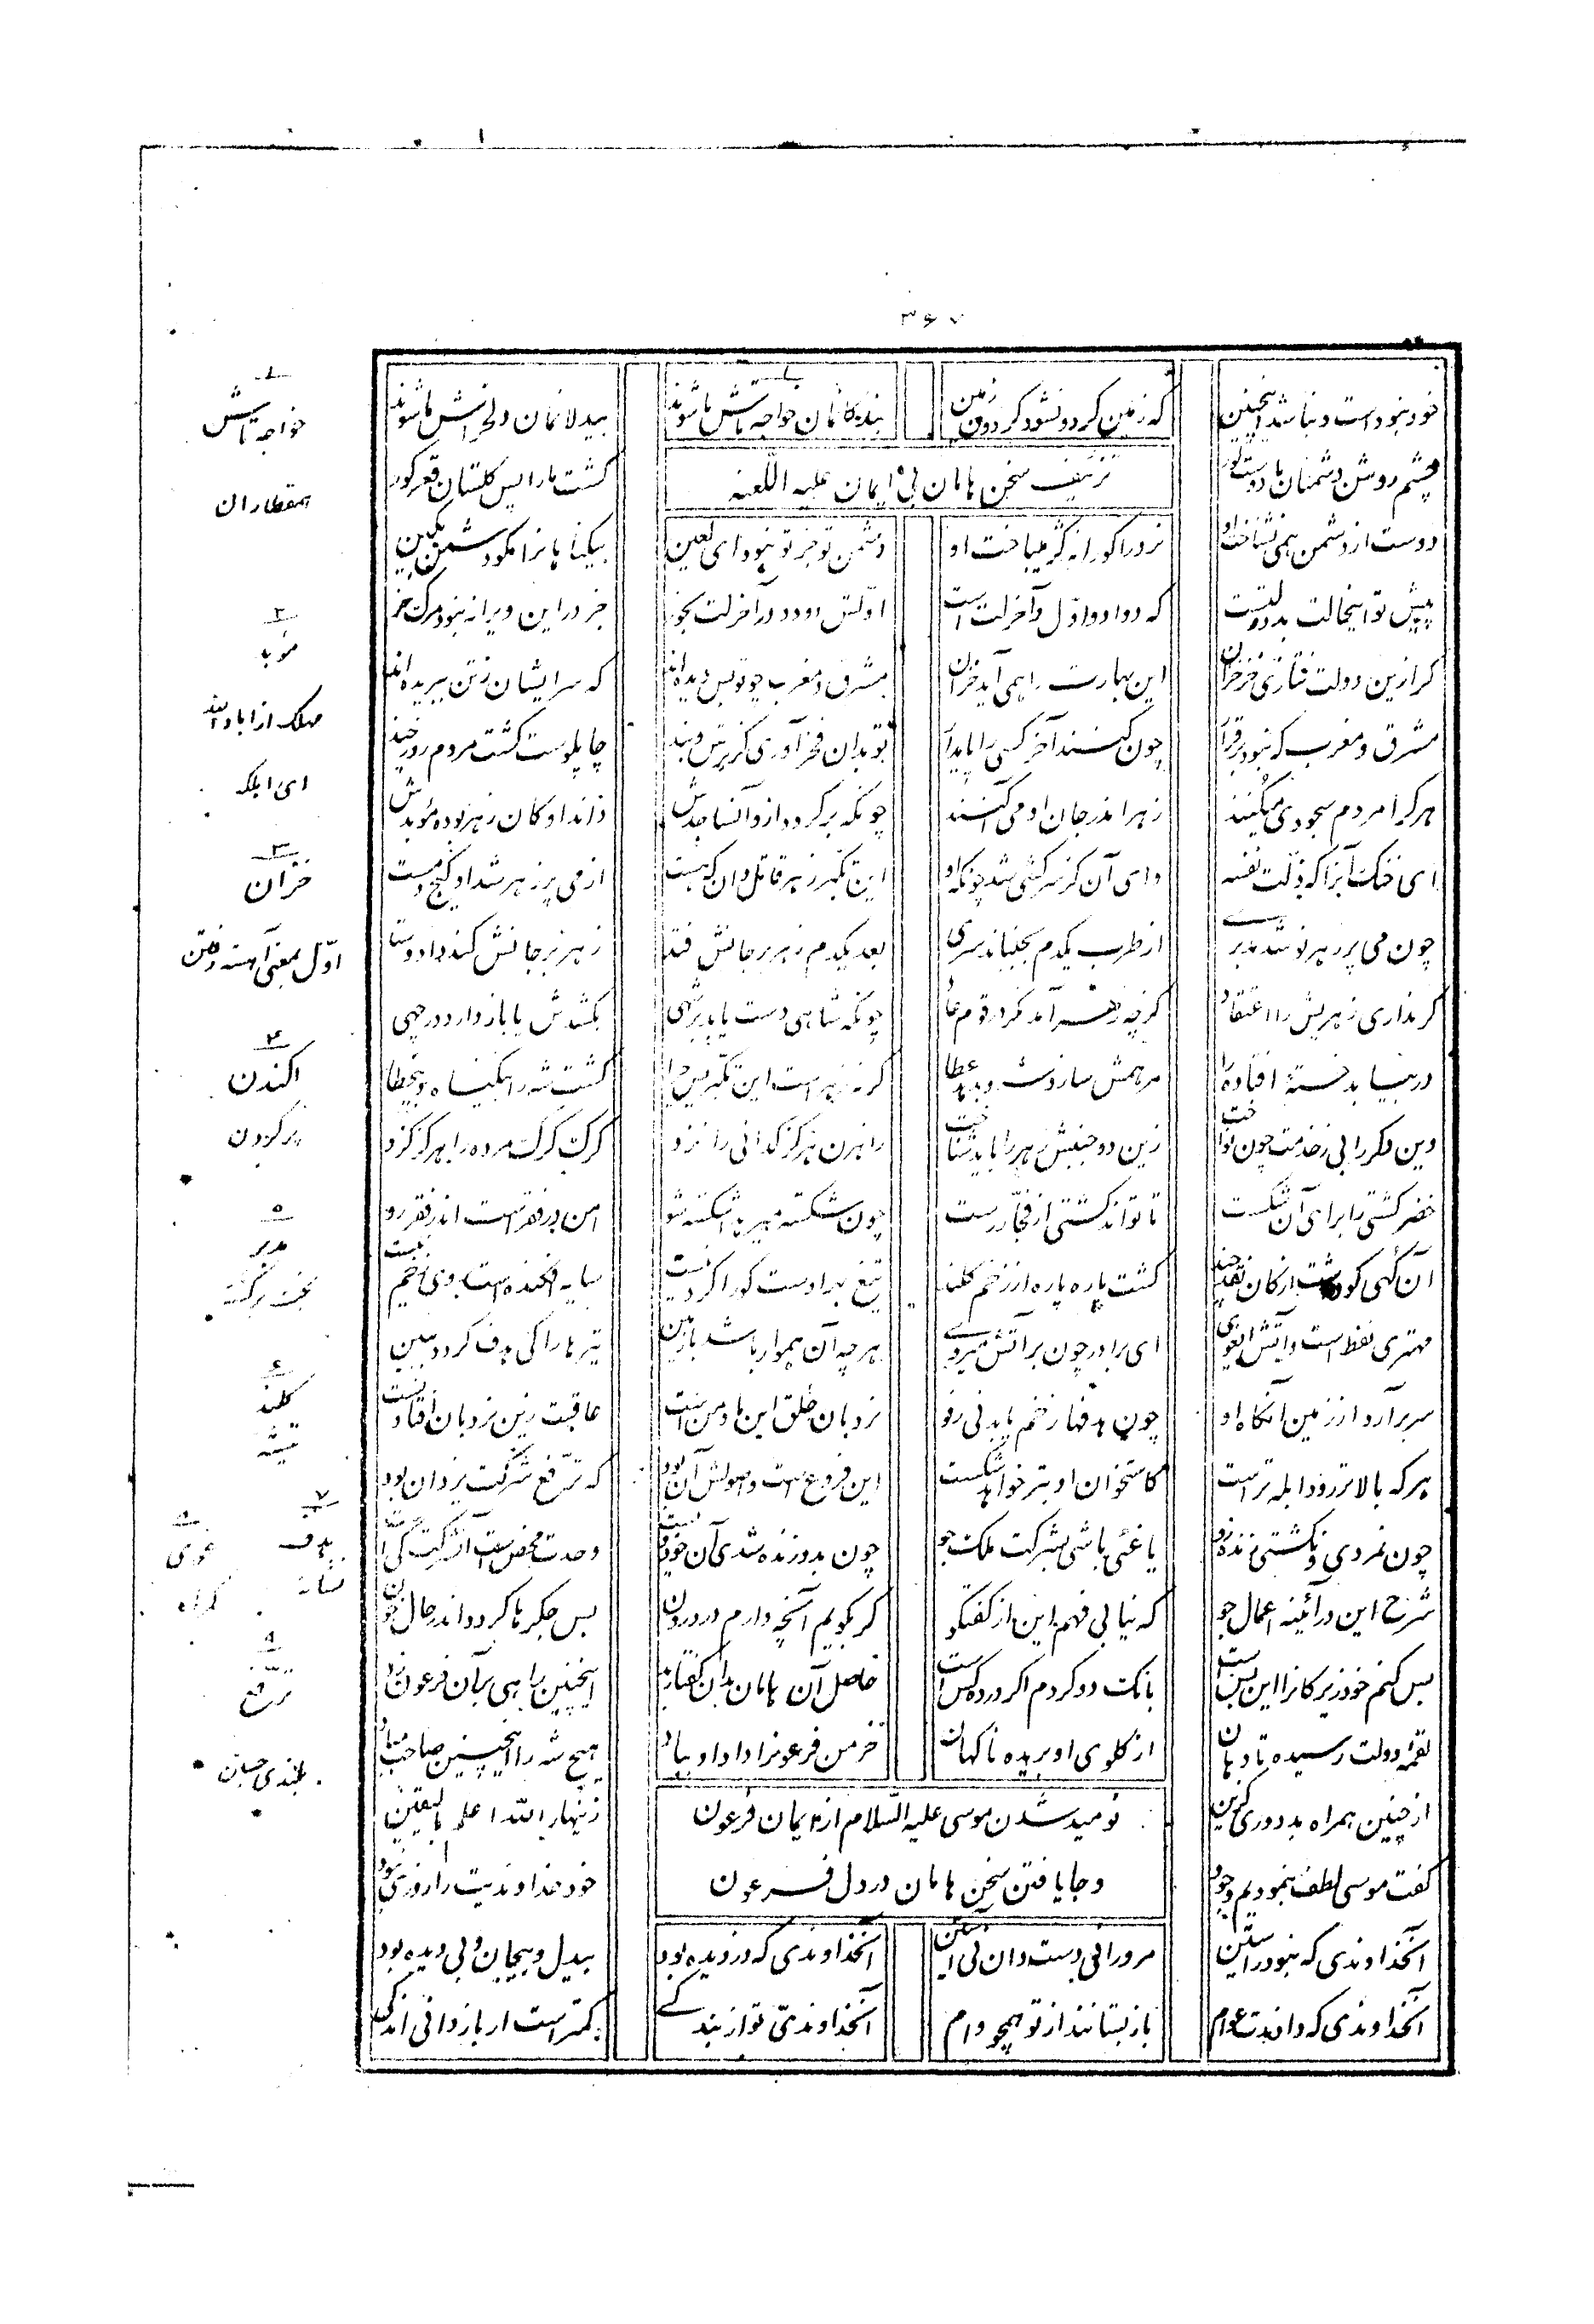 ۳۶۷
خود نبوداست و نباشد اینچنین که زمین کردون شود کردون زمین بندکانمان خواجه تاش ما شوند بیدلانمان دلخراش ما شوند
چشم روشن دشمنان و دوست کور کشت ما را پس کلستان قعر کور
تزییف سخن هامان بی ایمان علیه اللّعنه
دوست از دشمن همی نشناخت او نرد را کورانه کژ میباخت او دشمن تو جز تو نبود ای لعین بیکناهانرا مکو دشمن بکین
پیش تو اینحالت بد دولتست که دوادو اوّل و آخر لتست اوّلش دودو در آخر لت بخور جز در این ویرانه نبود مرک خر
کر ازین دولت نتازی خزخزان این بهارت را همی آید خزان مشرق و مغرب چو تو بس دیده‌اند که سر ایشان ز تن ببریده‌اند
مشرق و مغرب که نبود برقرار چون کنند آخر کسی را پایدار تو بدان فخر آوری کز ترس و بند چاپلوست کشت مردم روز چند
هرکرا مردم سجودی میکنند زهر اندر جان او می‌آکنند چونکه برکردد ازو آن ساجدش داند او کان زهر بوده موبدش
ای خنک آنرا که ذلّت نفسه وای آن کز سرکشی شد چونکه او این تکبّر زهر قاتل دان که هست از می پر زهر شد او کیج و مست
چون می پر زهر نوشد مدبری از طرب یکدم بجنباند سری بعد یکدم زهر بر جانش فتد زهر بر جانش کند داد و ستد
کر نداری زهریش را اعتقاد کو چه زهر آمد نکر در قوم عاد چونکه شاهی دست یابد بر شهی بکشدش یا باز دارد در چهی
ور بیابد خستهٔ افتاده را مرهمش سازد شه و بدهد عطا کر نه زهر است این تکبّر پس چرا کشت شه را بیکناه و بیخطا
وین دکر را بی ز خدمت چون نواخت زین دو جنبش زهر را باید شناخت راهزن هرکز کدائی را نزد کرک کرک مرده را هرکز کزد
خضر کشتی را برای آن شکست تا تواند کشتی از فجّار رست چون شکسته میرهد اشکسته شو امن در فقر است اندر فقر رو
آن کهی کو داشت از کان نقد چند کشت پاره پاره از زخم کلند تیغ بهر اوست کو را کردنیست سایه افکنده است بر وی زخم نیست
مهتری نفط است و آتش ای غوی ای برادر چون بر آتش میروی هرچه آن هموار باشد با زمین تیرها را کی هدف کردد ببین
سر برآرد از زمین آنکاه او چون هدفها زخم یابد بی رفو نردبان خلق این ما و من است عاقبت زین نردبان افتادنست
هرکه بالاتر رود ابله‌تر است کاستخوان او بتر خواهد شکست این فروع است و اصولش آن بود که ترفّع شرکت یزدان بود
چون نمردی و نکشتی زنده زو یاغیی باشی بشرکت ملک جو چون بدو زنده شدی آن خود ویست وحدت محض است آن شرکت کی است
شرح این در آئینه اعمال جو که نیابی فهم این از کفتکو کر بکویم آنچه دارم در درون بس جکرها کردد اندر حال خون
بس کنم خود زیرکانرا این بس است بانک دو کردم اکر در ده کس است حاصل آن هامان بدان کفتار بد اینچنین راهی بر آن فرعون زد
لقمهٔ دولت رسیده تا دهان از کلوی او بریده ناکهان خرمن فرعونرا داد او بباد هیچ شه را اینچنین صاحب مباد
از چنین همراه بد دوری کزین زینهار الله اعلم بالیقین
نومید شدن موسی علیه السّلام از ایمان فرعون
و جا یافتن سخن هامان در دل فرعون
کفت موسی لطف بنمودیم و جود خود خداوندیت را روزی نبود
آنخداوندی که نبود راستین مرو را نی دست دان نی آستین آنخداوندی که دزدیده بود بیدل و بیجان و بی دیده بود
آنخداوندی که دادندت عوام باز بستانند از تو همچو وام آنخداوندیّ تو از بندکی کمتر است ار باز دانی اندکی
۱
خواجه تاش
همقطاران
۲
موبد
ای اهلک
۳
خزان
اوّل بمعنی آهسته رفتن
۴
اکندن
پر کردن
۵
مدبر
بخت برکشته
۶
کلند
تیشه
۷
هدف
نشانه
۸
غوی
کمراه
۹
ترفّع
بلندی جستن